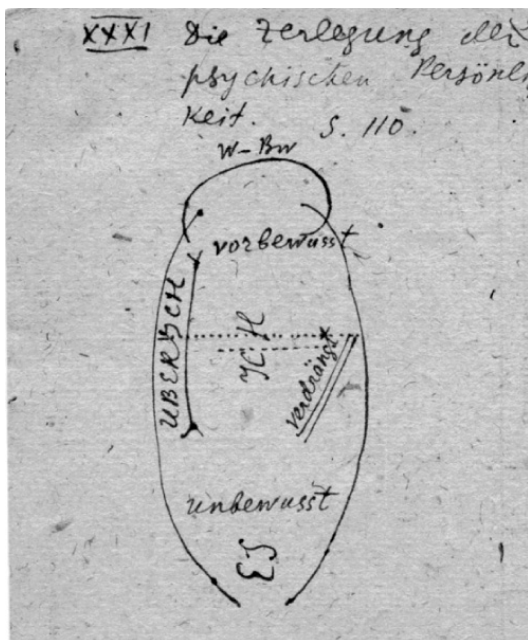 XXXI Die Zerlegung der
psychischen Persönlich
keit. S. 110.
W-Bw
vorbewusst
ÜBERICH
ICH
verdrängt
unbewusst
ES